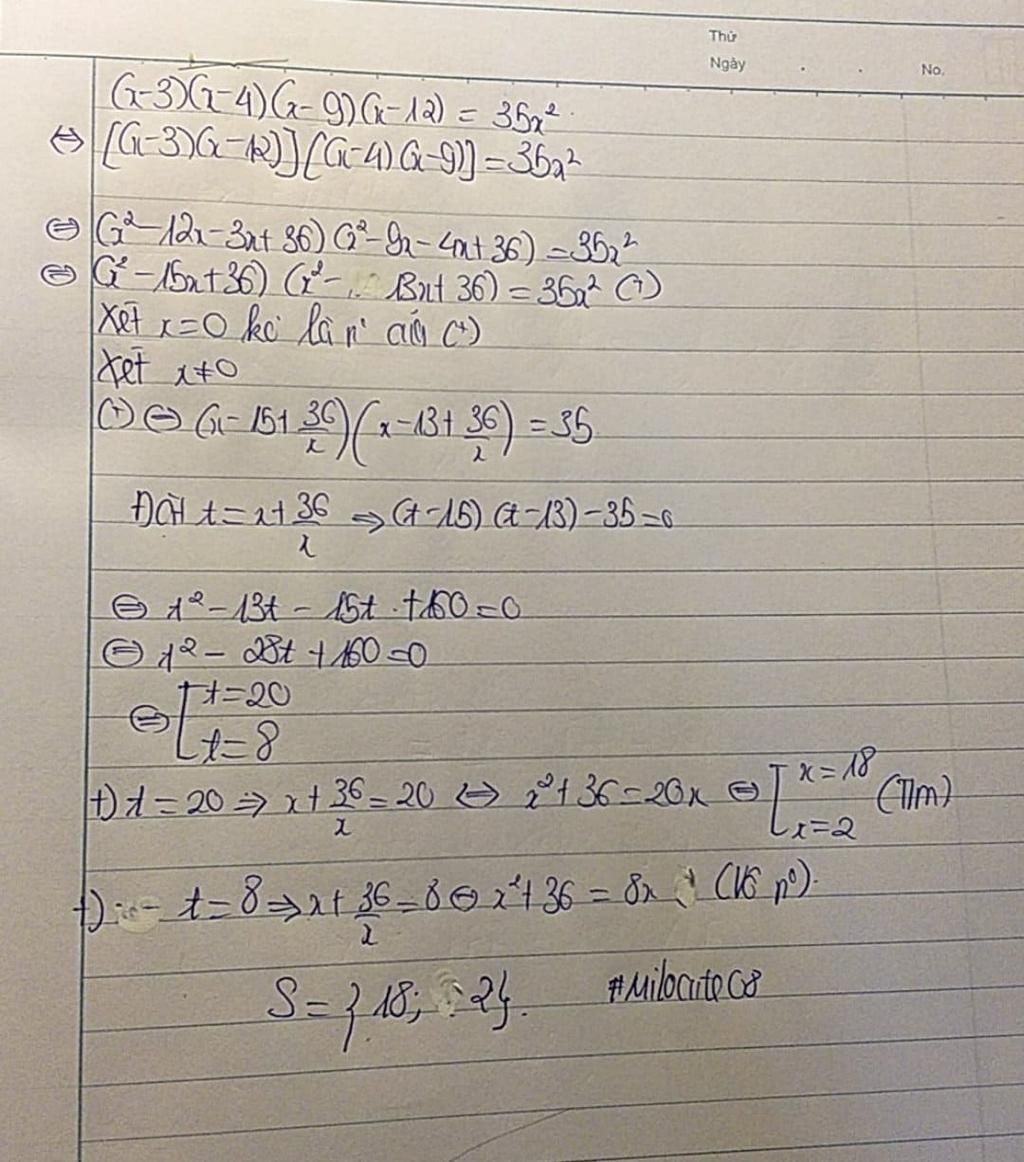 Thứ
Ngày . . No.
(x-3)(x-4)(x-9)(x-12) = 35x²
⇔ [(x-3)(x-12)][(x-4)(x-9)] = 35x²
⇔ (x²-12x-3x+36)(x²-9x-4x+36) = 35x²
⇔ (x²-15x+36)(x²-13x+36) = 35x² (+)
Xét x=0 ko là n° của (+)
Xét x≠0
(+) ⇔ (x-15+36/x)(x-13+36/x) = 35
Đặt t = x+36/x ⇒ (t-15)(t-13)-35=0
⇔ t²-13t-15t+160=0
⇔ t²-28t+160=0
⇔ [t=20
t=8
+) t=20 ⇒ x+36/x=20 ⇔ x²+36=20x ⇔ [x=18 (T/m)
x=2
+) t=8 ⇒ x+36/x=8 ⇔ x²+36=8x (Vô n°).
S={18; 2}. #Milocute08